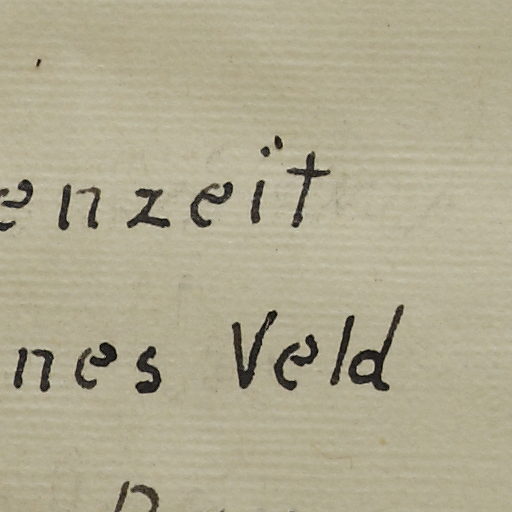 enzeit
nes Veld